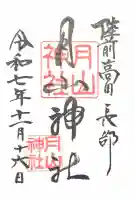 陸前高田 長部
月山神社
月山
神社
月山
神社
令和七年十一月十六日